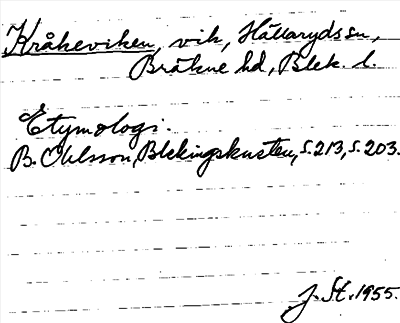 Kråkeviken, vik, Hällaryds sn,
Bräkne hd, Blek. l.
Etymologi.
B. Ohlsson, Blekingskusten, s. 213, s. 203.
J. St. 1955.